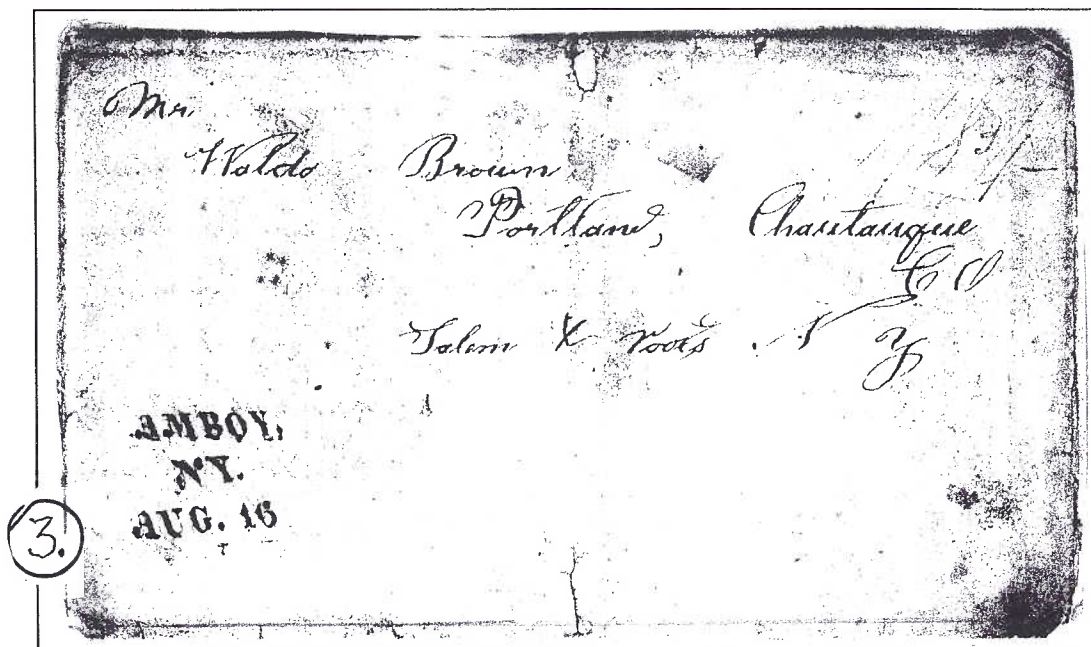 Mr.
Waldo Brown
Portland, Chautauque
CO
Salem X Roads . N Y
AMBOY,
NY.
AUG. 16
3.